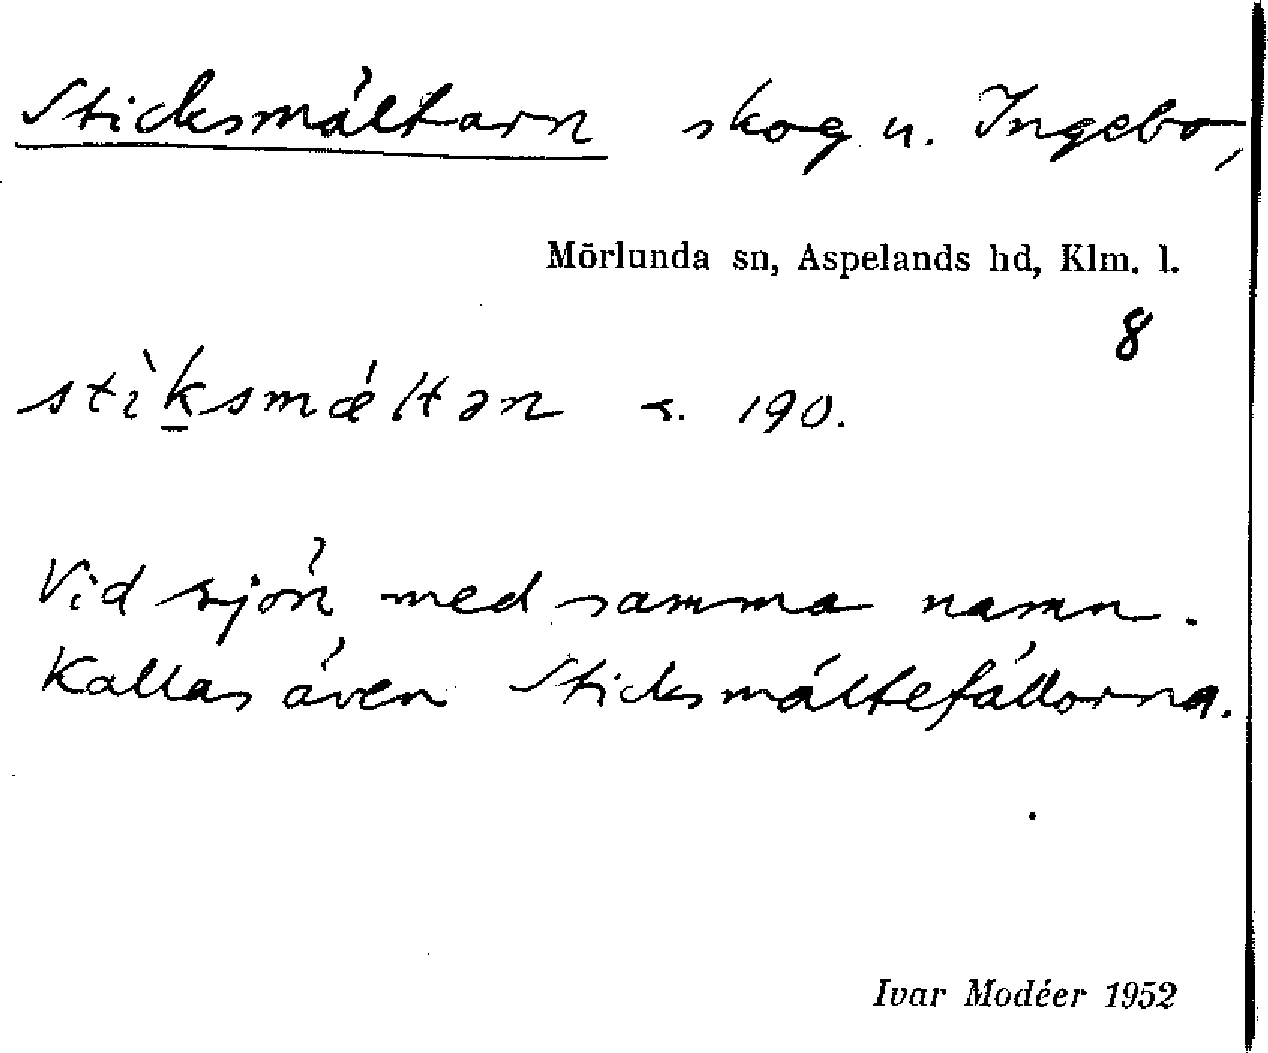 Sticksmältarn skog u. Ingebo,
Mörlunda sn, Aspelands hd, Klm. l.
8
stìksmǽltən s. 190.
Vid sjön med samma namn.
Kallas även Sticksmältefällorna.
Ivar Modéer 1952